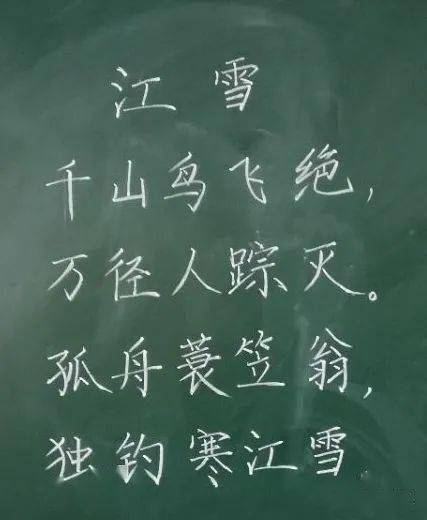 江雪
千山鸟飞绝，
万径人踪灭。
孤舟蓑笠翁，
独钓寒江雪